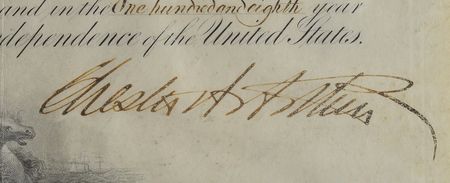 and in the One hundred and eighth year
dependence of the United States.
Chester A Arthur